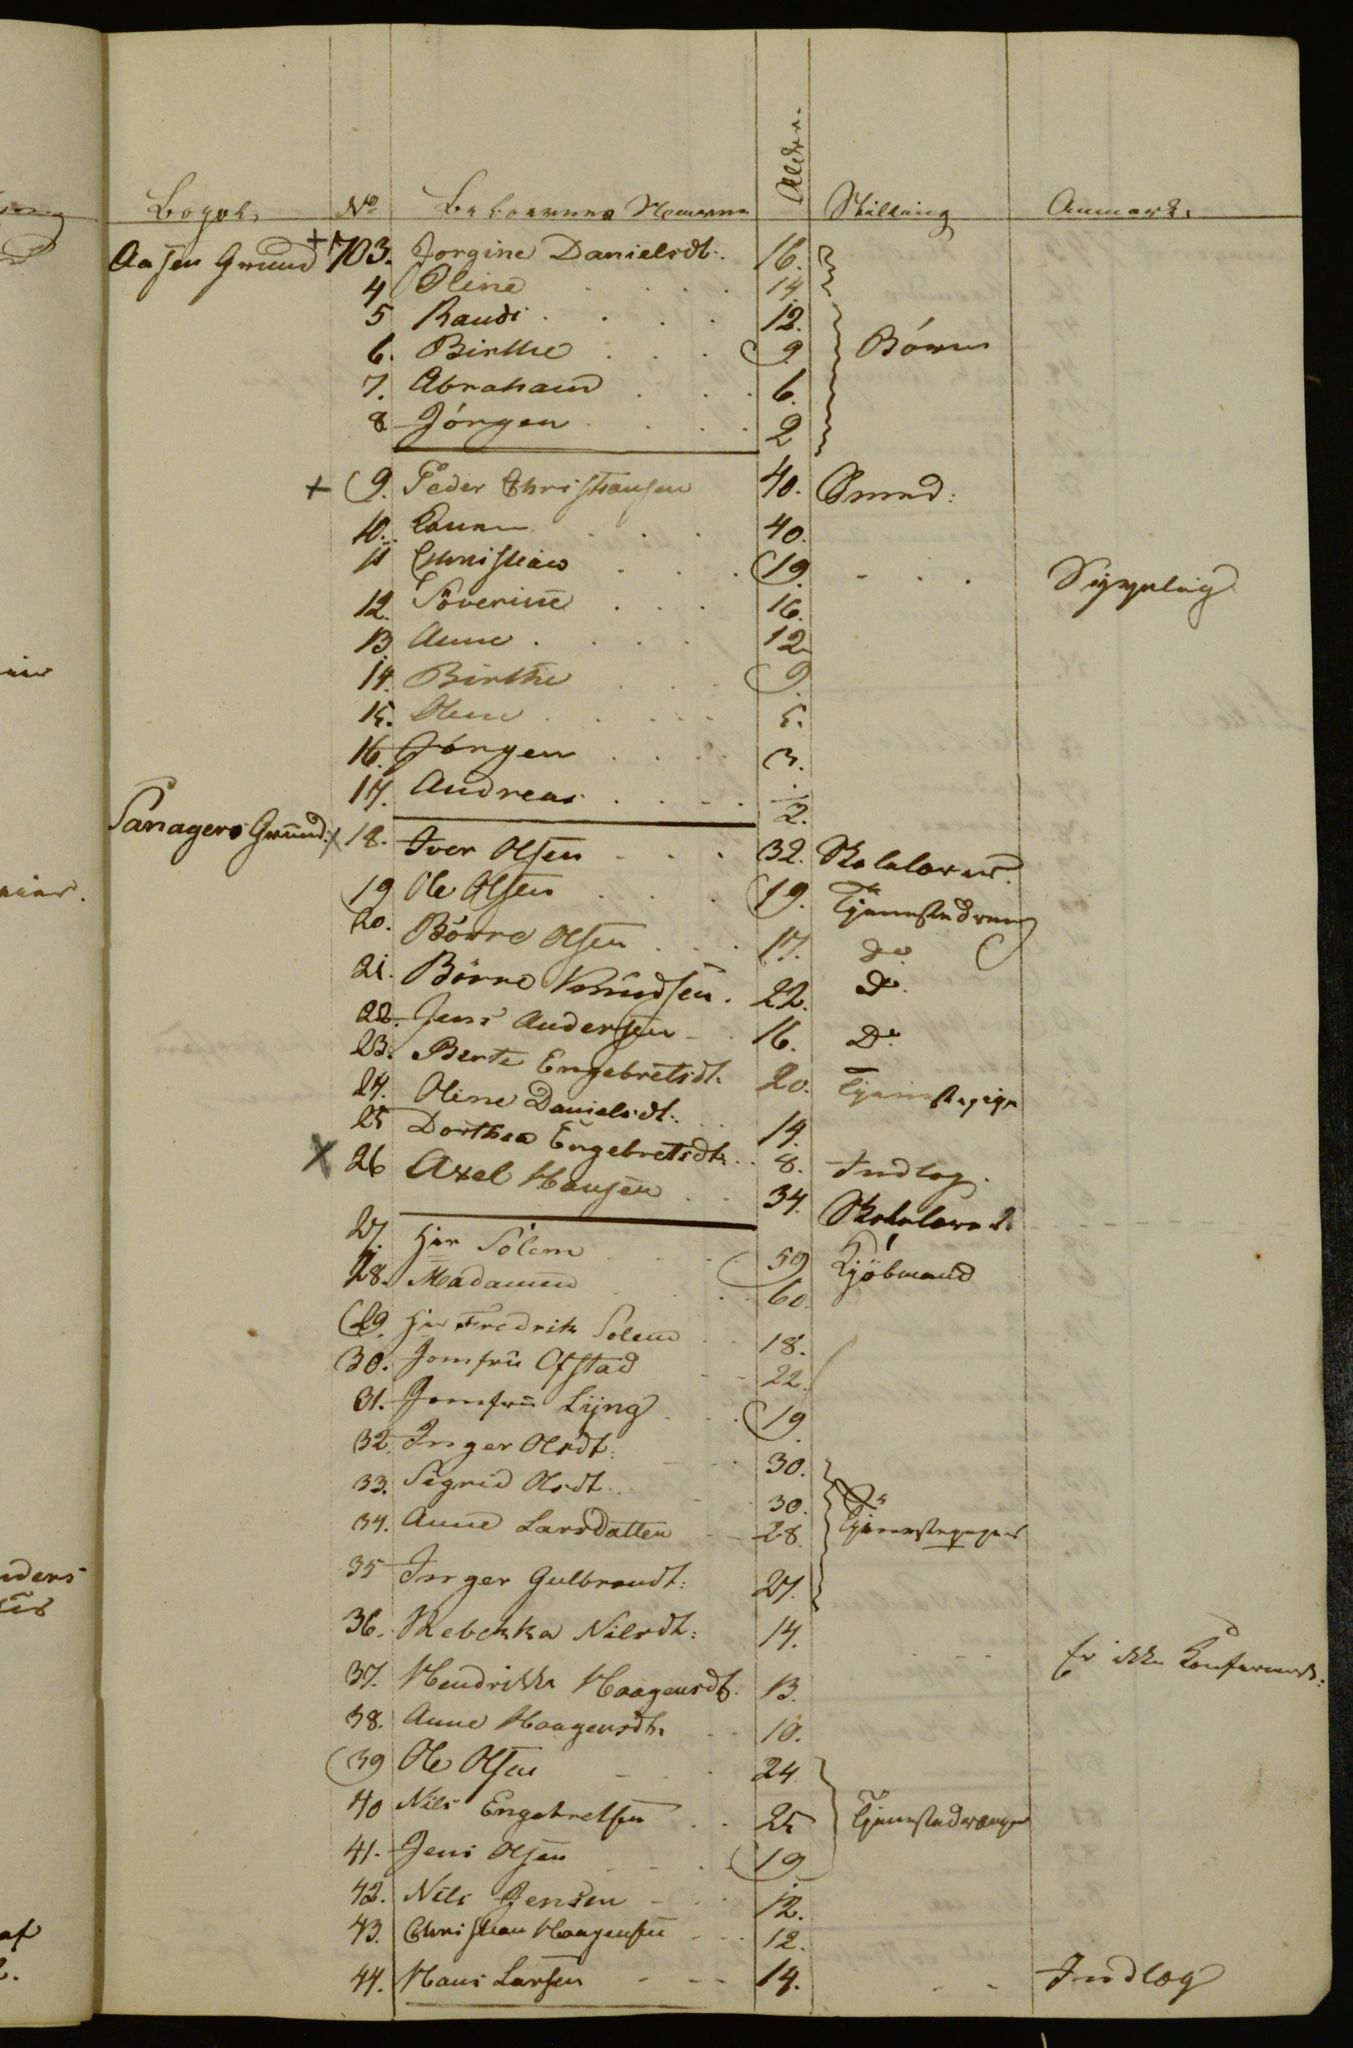 Bopæl. No Beboernes Navne Alder. Stilling Anmærk:
Aasen Grund + 703. Jorgine Danielsdt. 16.
4 Oline 14
5 Randi 12. Börn
6. Birthe 9
7. Abraham 6.
8 Jörgen 2
+ 9. Peder Christiansen 40. Smed:
10. 40.
11 Christian 19 Sygelig
12. Söverine 16.
13 Anne 12
14. Birthe 9
15. 5.
16. Jörgen 3.
17. Andreas 1/2.
Panagers Grund. x 18. Iver Olsen 32. Skolelærer.
19 Ole Olsen 19. Tjenestedreng
20. Börre Olsen 17. do
21. Börre Knudsen. 22. Do.
22. Jens Andersen 16. Do
23. Berte Engebretsdt. 20. Tjenestepige
24. Oline Danielsdt. 14.
25 Dorthea Engebretsdt. 8. Indlog.
x 26 Axel Hansen 34. Skolelære
27. Hr Sölem 59 Kjöbmand
28. Madamen 60.
29. Hr Fredrik Solem 18.
30. Jomfru Ofstad 22.
31. Jomfru Lijng 19
32. Inger Olsdt: 30.
33. Sigrid Olsdt. 30.
34. Anne Larsdatter 28. Tjenestepiger
35 Inger Gulbrandt: 27.
36. Rebekka Nilsdt: 14. Er ikke Konfermert:
37. Hendrikke Haagensdt. 13.
38. Anne Haagensdt. 10.
39 Ole Olsen 24
40 Nils Engebretsen 25 Tjenestedrenge
41. Jens Olsen 19
42. Nils Jensen 12.
43. Christian Haagensen 12.
44. Hans Larsen 14. Indlog